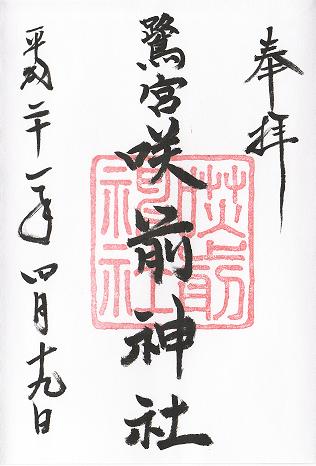 奉拝
鷺宮咲前神社
咲前神社
平成二十一年四月十九日